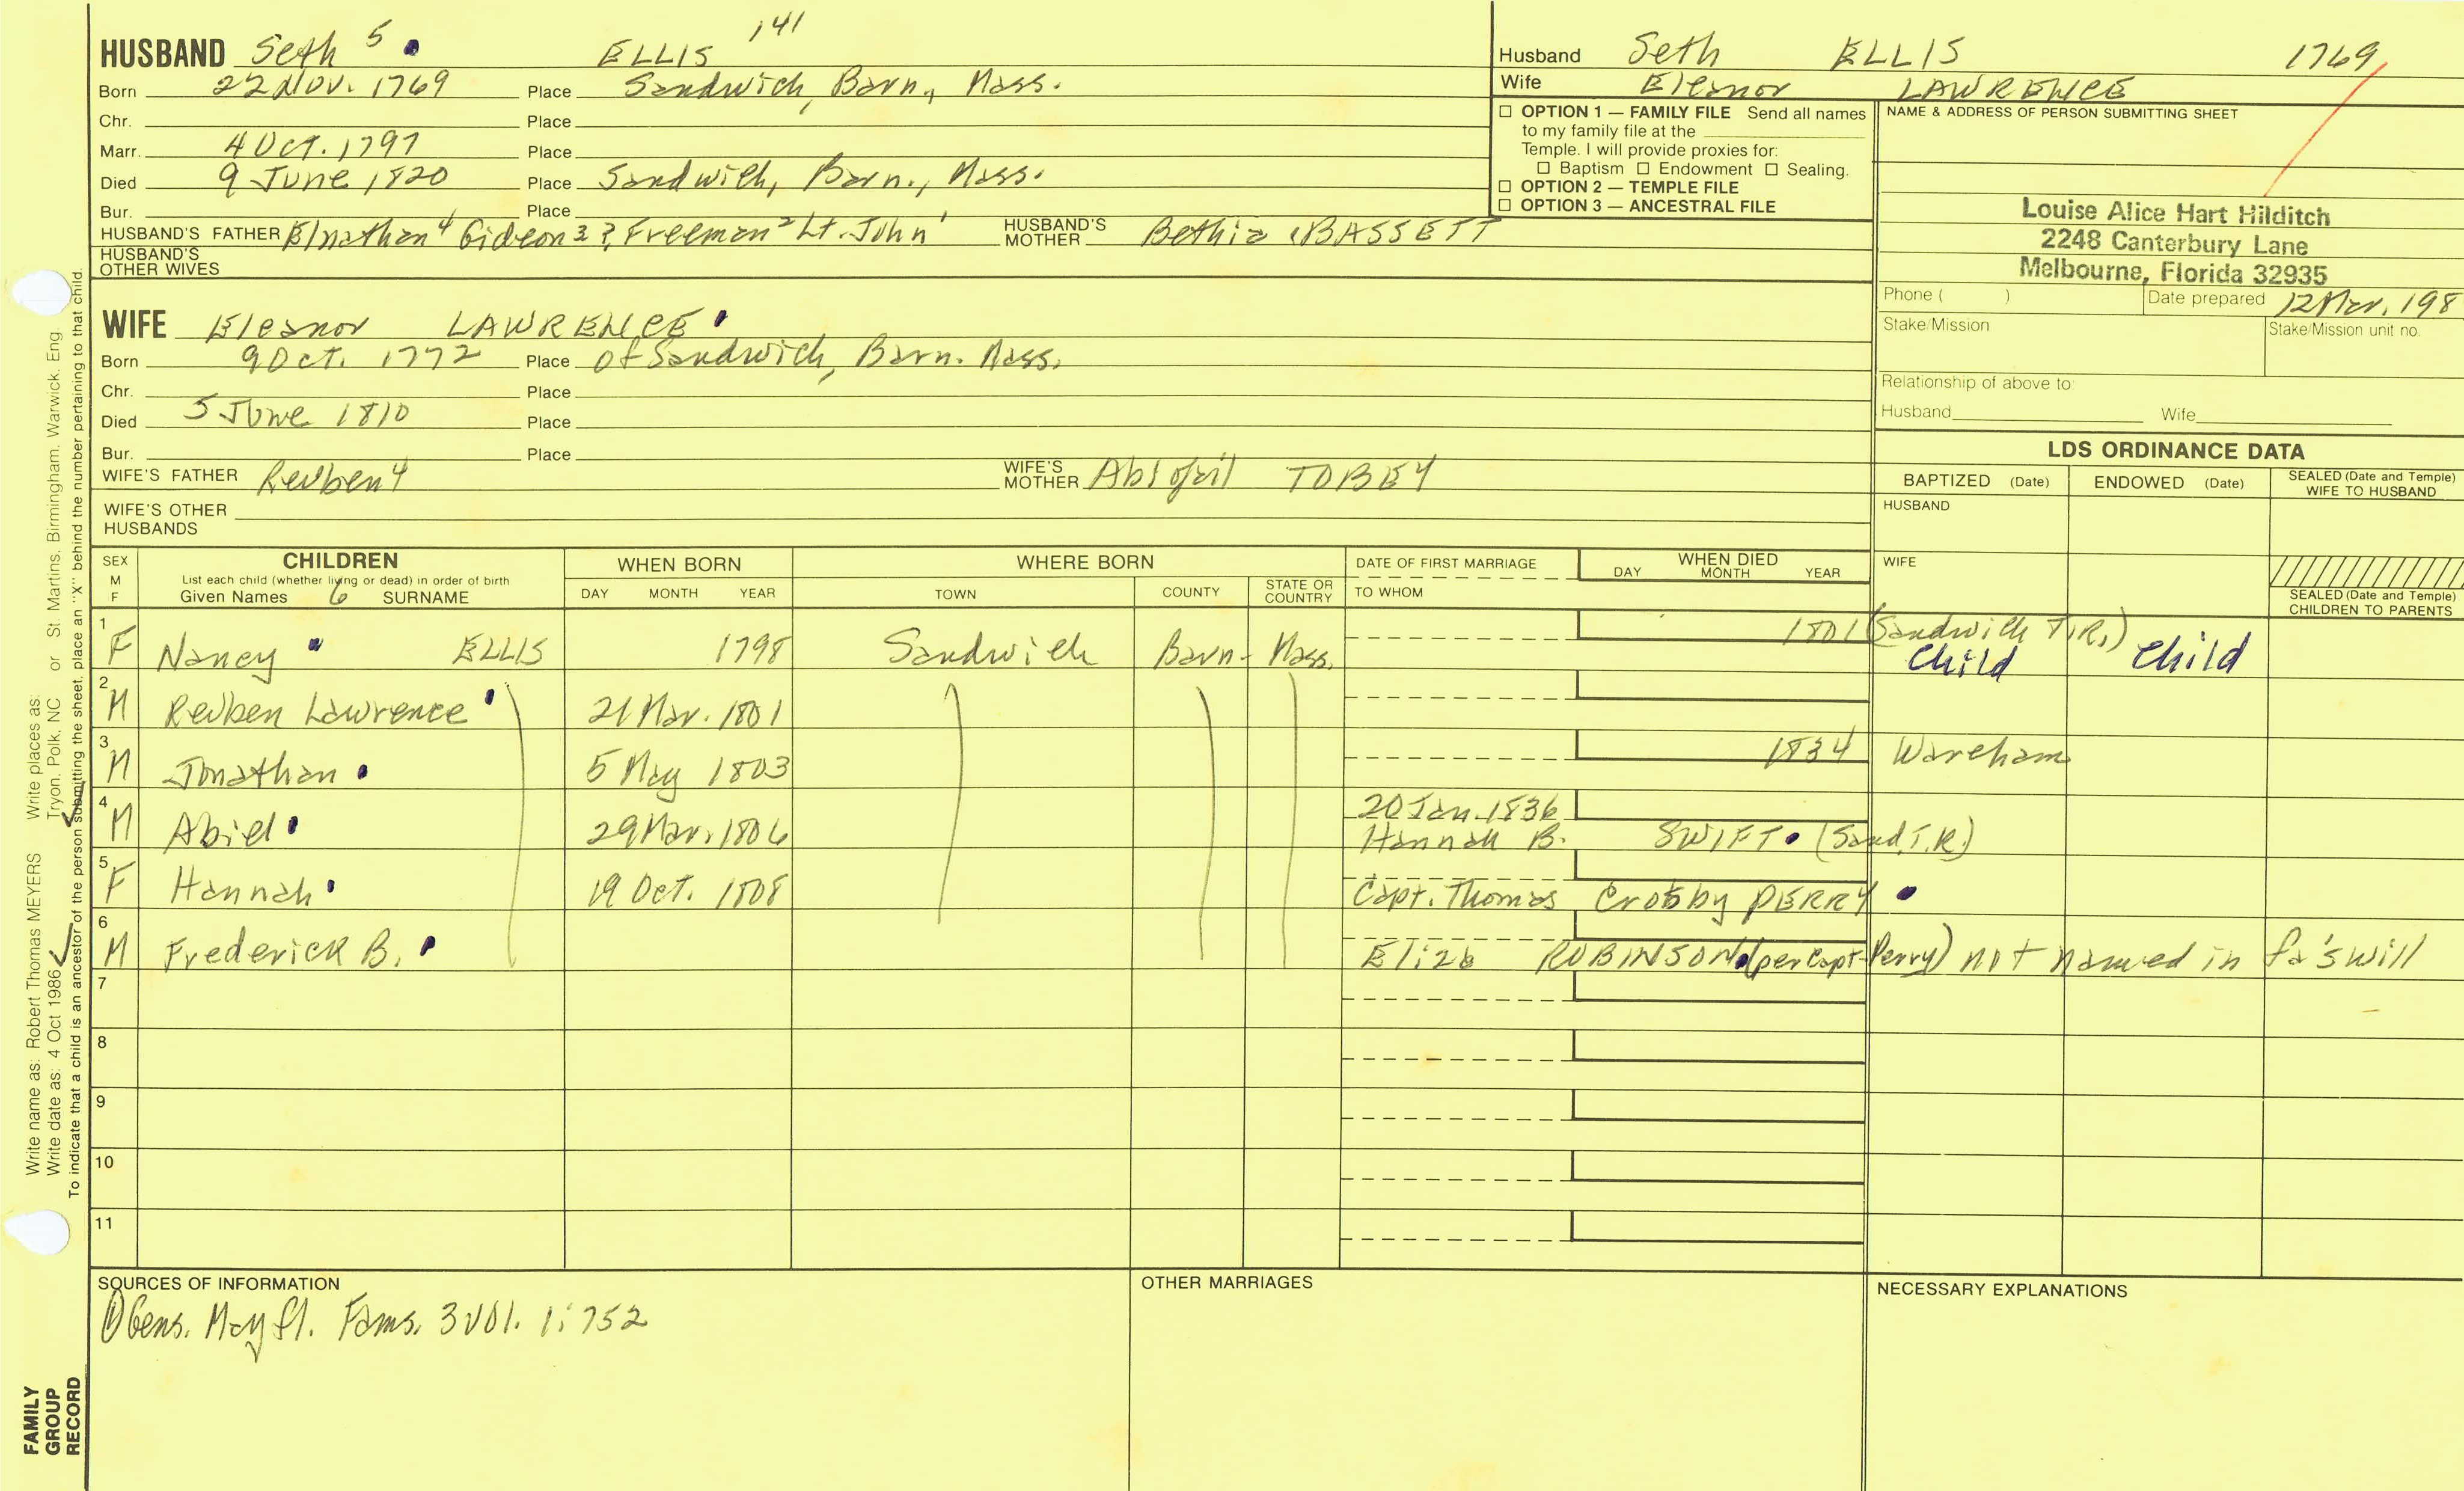 141
HUSBAND Seth 5 ELLIS
Born 22 Nov. 1769 Place Sandwich, Barn., Mass.
Chr. Place
Marr. 4 Oct. 1797 Place
Died 9 June 1820 Place Sandwich, Barn., Mass.
Bur. Place
HUSBAND'S FATHER Elnathan 4 Gideon 3 ? Freeman 2 Lt. John 1 HUSBAND'S MOTHER Bethia BASSETT
HUSBAND'S OTHER WIVES
Husband Seth ELLIS 1769
Wife Eleanor LAWRENCE
☐ OPTION 1 — FAMILY FILE Send all names
to my family file at the
Temple. I will provide proxies for:
☐ Baptism ☐ Endowment ☐ Sealing.
☐ OPTION 2 — TEMPLE FILE
☐ OPTION 3 — ANCESTRAL FILE
NAME & ADDRESS OF PERSON SUBMITTING SHEET
Louise Alice Hart Hilditch
2248 Canterbury Lane
Melbourne, Florida 32935
Phone ( ) Date prepared 12 Mar. 198
Stake/Mission Stake/Mission unit no.
Relationship of above to:
Husband Wife
WIFE Eleanor LAWRENCE
Born 9 Oct. 1772 Place of Sandwich, Barn. Mass.
Chr. Place
Died 5 June 1810 Place
Bur. Place
WIFE'S FATHER Reuben 4 WIFE'S MOTHER Abigail TOBEY
WIFE'S OTHER
HUSBANDS
LDS ORDINANCE DATA
BAPTIZED (Date) ENDOWED (Date) SEALED (Date and Temple) WIFE TO HUSBAND
HUSBAND
WIFE
SEALED (Date and Temple) CHILDREN TO PARENTS
SEX M F CHILDREN WHEN BORN WHERE BORN DATE OF FIRST MARRIAGE WHEN DIED
List each child (whether living or dead) in order of birth
Given Names 6 SURNAME DAY MONTH YEAR TOWN COUNTY STATE OR COUNTRY TO WHOM DAY MONTH YEAR
1 F Nancy ELLIS 1798 Sandwich Barn. Mass. 1801 (Sandwich T.R.) Child Child
2 M Reuben Lawrence 21 Mar. 1801
3 M Jonathan 5 May 1803 1834 Wareham
4 M Abiel 29 Mar. 1806 20 Jan. 1836 Hannah B. SWIFT (Sand. T.R.)
5 F Hannah 19 Oct. 1808 Capt. Thomas Crosby PERRY
6 M Frederick B. Eliza ROBINSON (per Capt. Perry) not named in fa's will
7
8
9
10
11
SOURCES OF INFORMATION
① Gens. Mayfl. Fams. 3 vol. 1:752
OTHER MARRIAGES
NECESSARY EXPLANATIONS
Write name as: Robert Thomas MEYERS Write places as:
Write date as: 4 Oct 1986 Tryon, Polk, NC or St. Martins, Birmingham, Warwick, Eng
To indicate that a child is an ancestor of the person submitting the sheet, place an "X" behind the number pertaining to that child.
FAMILY
GROUP
RECORD